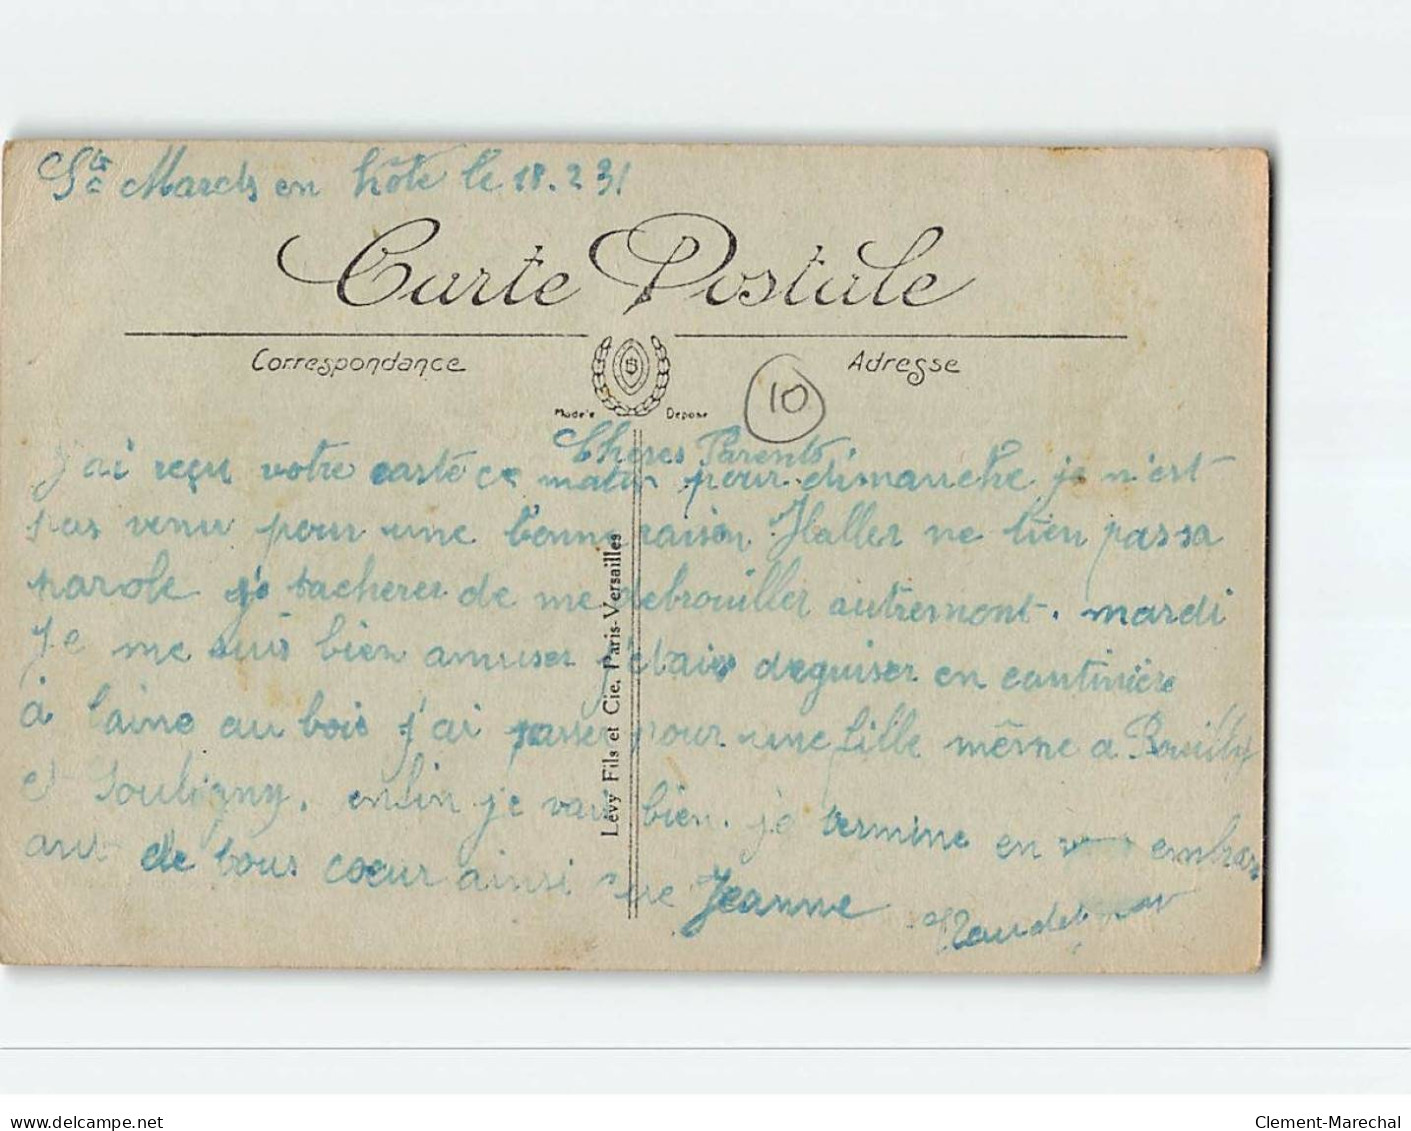 Ste Mards en hôte le 18.2 31
Carte Postale
Correspondance
Adresse
Modèle Déposé
10
Cheres Parents
j'ai reçu votre carte ce matin pour dimanche je n'est
pas venu pour une bonne raison Haller ne tien pas sa
parole je tacherer de me debrouiller autremont. mardi
Je me suis bien amuser j'etais deguiser en cantinière
à laine au bois j'ai passer pour une fille même a Bouilly
et Souligny. enfin je vais bien. je termine en embras
ant de tous coeur ainsi que Jeanne
Lévy Fils et Cie, Paris-Versailles
delcampe.net
Clement-Marechal